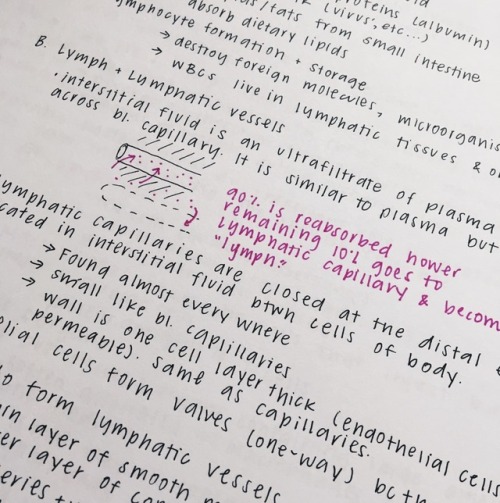 proteins (albumin)
/fats from small intestine (virus, etc...)
absorb dietary lipids
lymphocyte formation + storage
→ destroy foreign molecules, microorganis
→ WBCs live in lymphatic tissues & o
B. Lymph + Lymphatic vessels
· interstitial fluid is an ultrafiltrate of plasma
across bl. capillary. It is similar to plasma but
90% is reabsorbed hower
remaining 10% goes to
lymphatic capillary & becom
"lymph."
lymphatic capillaries are closed at the distal
cated in interstitial fluid btwn cells of body.
→ Found almost every where
→ small like bl. capillaries
→ wall is one cell layer thick (endothelial cells
permeable). same as capillaries.
elial cells form valves (one-way) bc th
to form lymphatic vessels
layer of smooth
er layer of
eries